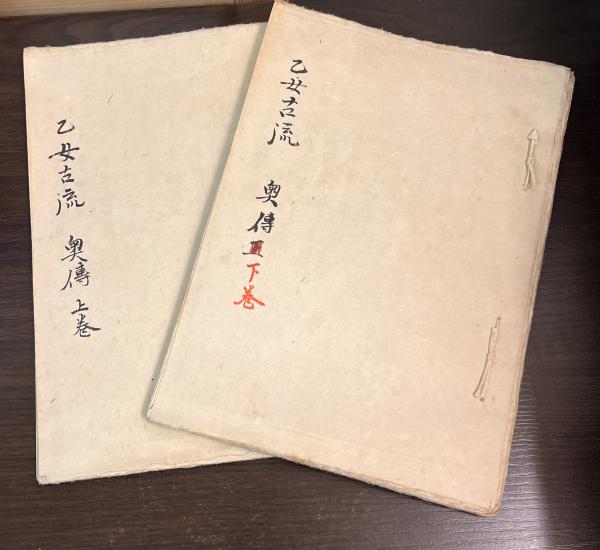 乙女古流 奥傳 下巻
乙女古流 奥傳 上巻